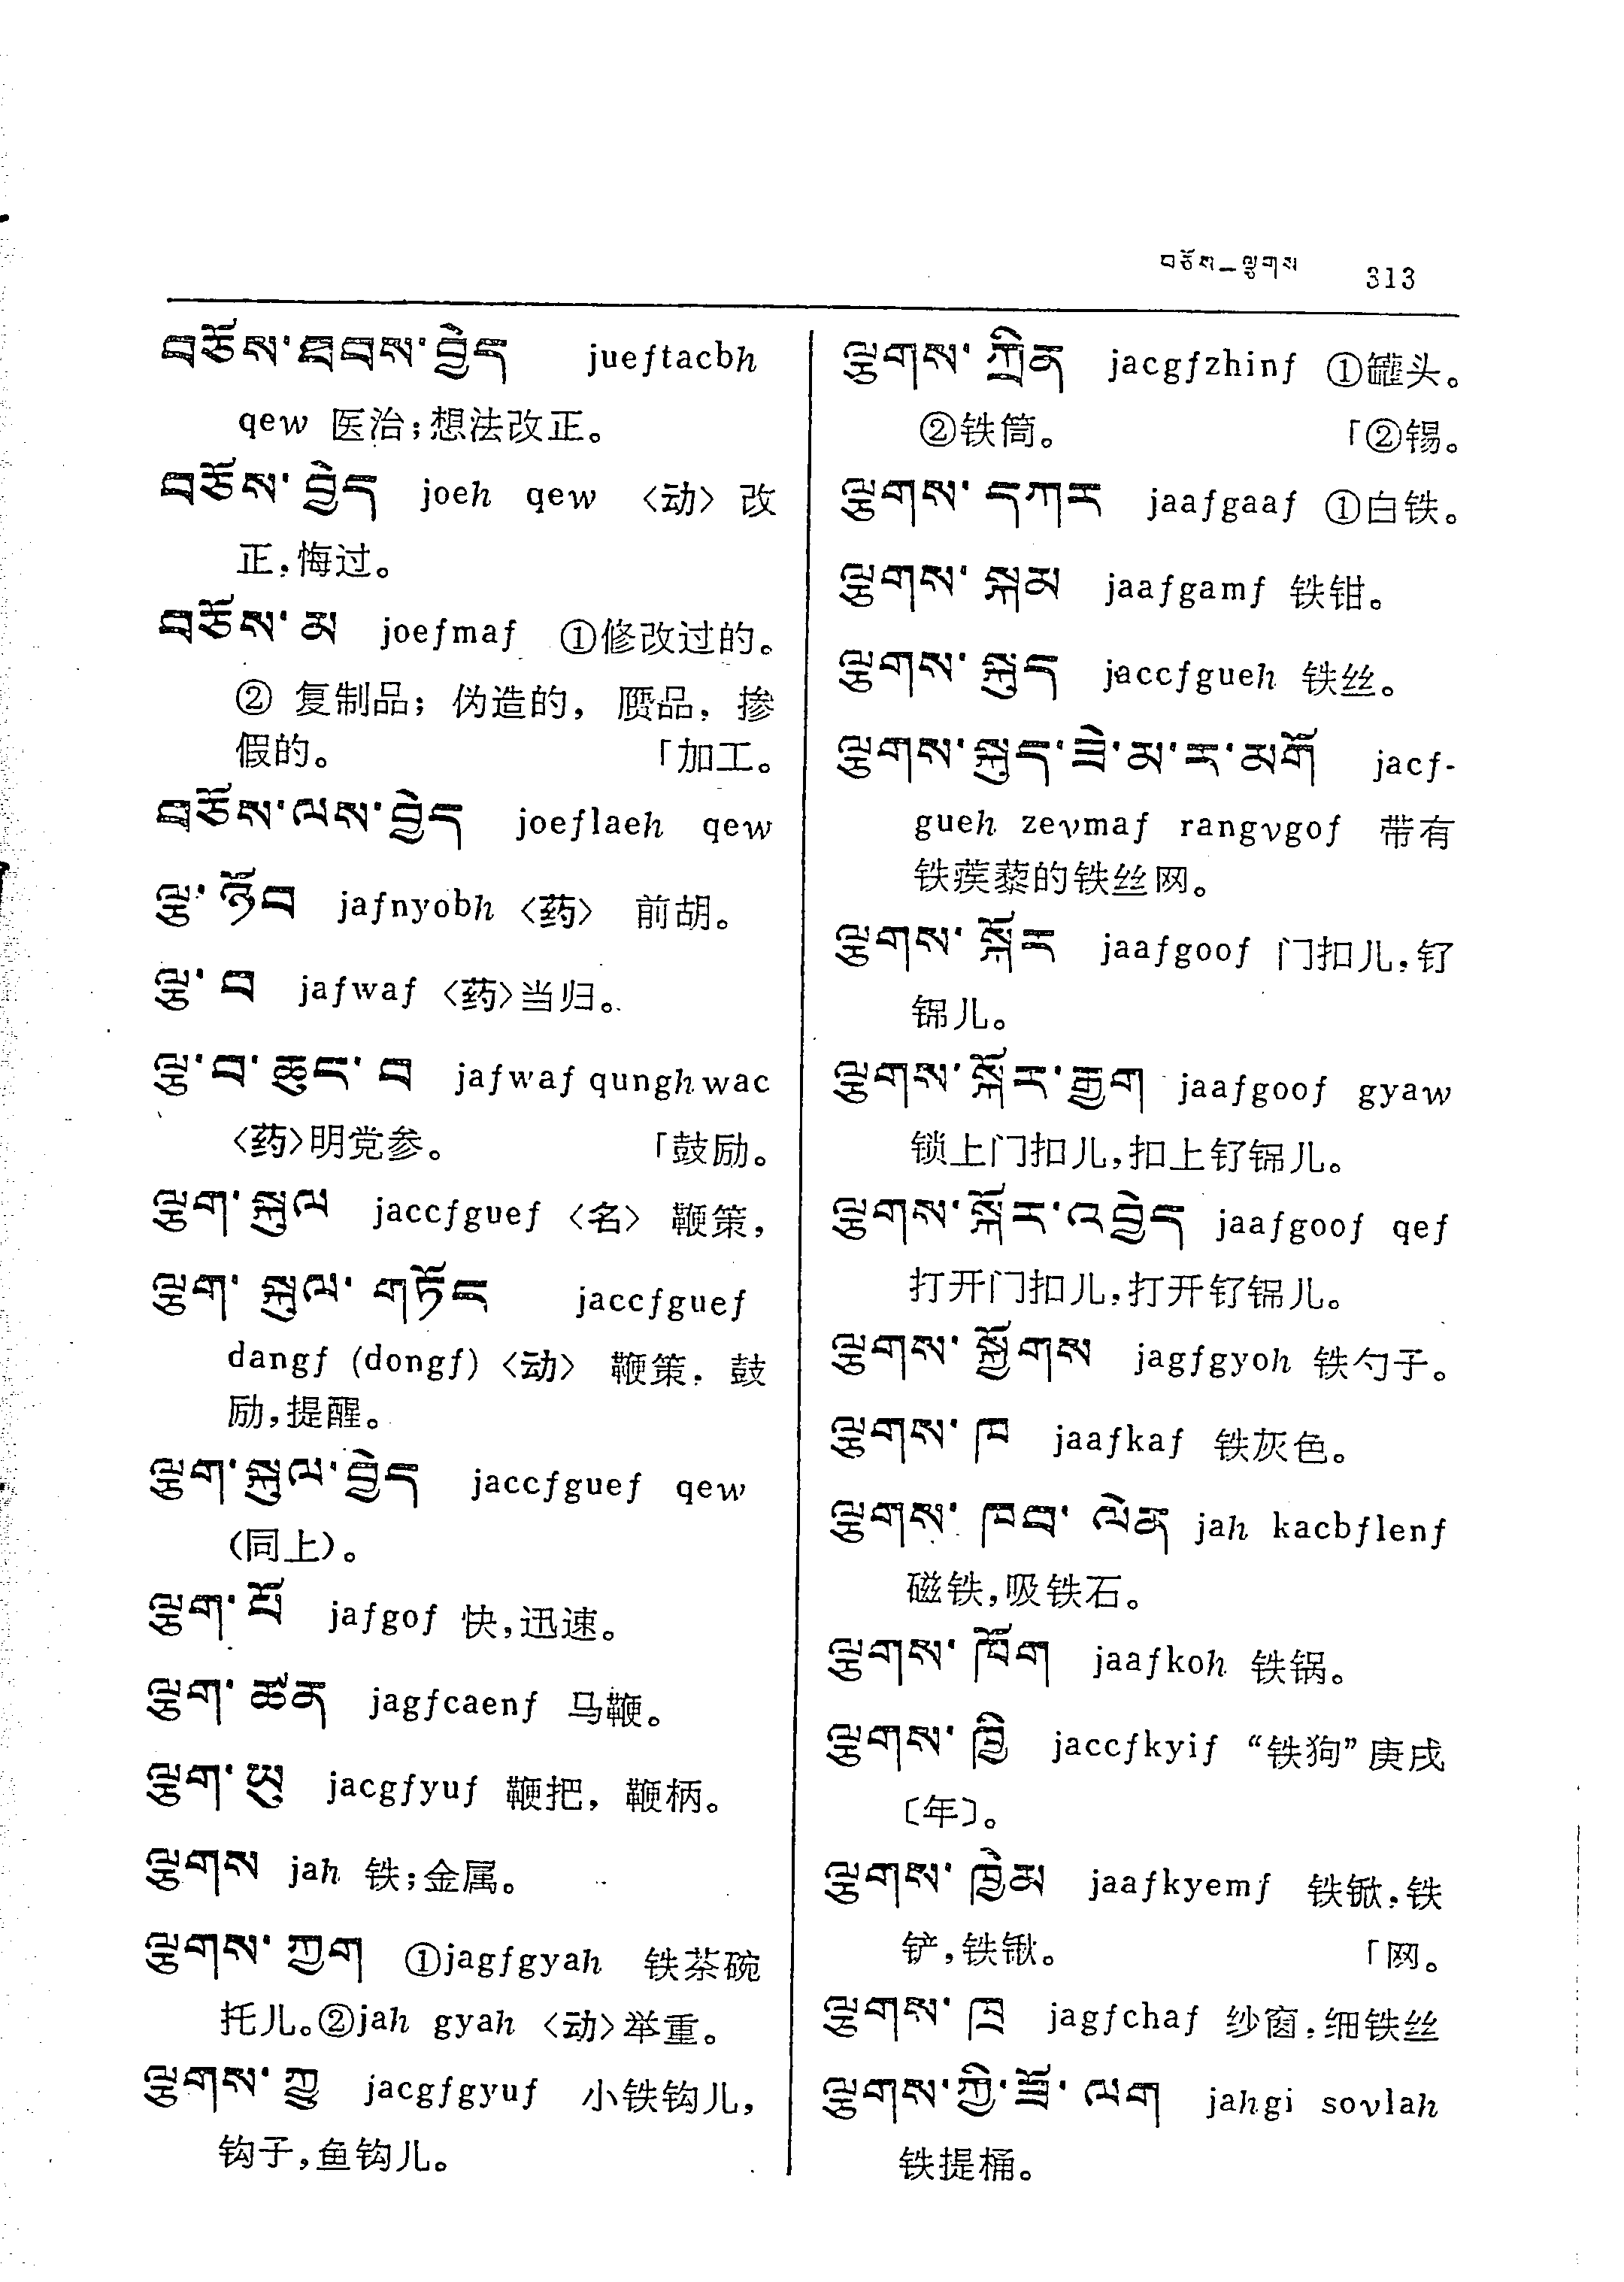 བཅོས–ལྕགས 313
བཅོས་ཐབས་བྱེད jueftacbh
qew 医治;想法改正。
བཅོས་བྱེད joeh qew 〈动〉 改
正,悔过。
བཅོས་མ joefmaf ①修改过的。
② 复制品; 伪造的, 赝品, 掺
假的。 「加工。
བཅོས་ལས་བྱེད joeflaeh qew
ལྕ་ཉོབ jafnyobh 〈药〉 前胡。
ལྕ་བ jafwaf 〈药〉当归。
ལྕ་བ་ཆུང་བ jafwaf qunghwac
〈药〉明党参。 「鼓励。
ལྕག་སྐུལ jaccfguef 〈名〉 鞭策,
ལྕག་སྐུལ་གཏོང jaccfguef
dangf (dongf) 〈动〉 鞭策, 鼓
励,提醒。
ལྕག་སྐུལ་བྱེད jaccfguef qew
(同上)。
ལྕག་པོ jafgof 快,迅速。
ལྕག་ཚན jagfcaenf 马鞭。
ལྕག་ཡུ jacgfyuf 鞭把, 鞭柄。
ལྕགས jah 铁;金属。
ལྕགས་ཀྱག ①jagfgyah 铁茶碗
托儿。②jah gyah 〈动〉举重。
ལྕགས་ཀྱུ jacgfgyuf 小铁钩儿,
钩子,鱼钩儿。
ལྕགས་ཀྲིན jacgfzhinf ①罐头。
②铁筒。 「②锡。
ལྕགས་དཀར jaafgaaf ①白铁。
ལྕགས་སྐམ jaafgamf 铁钳。
ལྕགས་སྐུད jaccfgueh 铁丝。
ལྕགས་སྐུད་ཟེ་མ་ར་མགོ jacf-
gueh zevmaf rangvgof 带有
铁蒺藜的铁丝网。
ལྕགས་སྐོར jaafgoof 门扣儿,钌
锦儿。
ལྕགས་སྐོར་རྒྱག jaafgoof gyaw
锁上门扣儿,扣上钌锦儿。
ལྕགས་སྐོར་འབྱེད jaafgoof qef
打开门扣儿,打开钌锦儿。
ལྕགས་སྐྱོགས jagfgyoh 铁勺子。
ལྕགས་ཁ jaafkaf 铁灰色。
ལྕགས་ཁབ་ལེན jah kacbflenf
磁铁,吸铁石。
ལྕགས་ཁོག jaafkoh 铁锅。
ལྕགས་ཁྱི jaccfkyif “铁狗”庚戌
〔年〕。
ལྕགས་ཁྱེམ jaafkyemf 铁锨,铁
铲,铁锹。 「网。
ལྕགས་ཁྲ jagfchaf 纱窗,细铁丝
ལྕགས་ཀྱི་ཟོ་ལག jahgi sovlah
铁提桶。